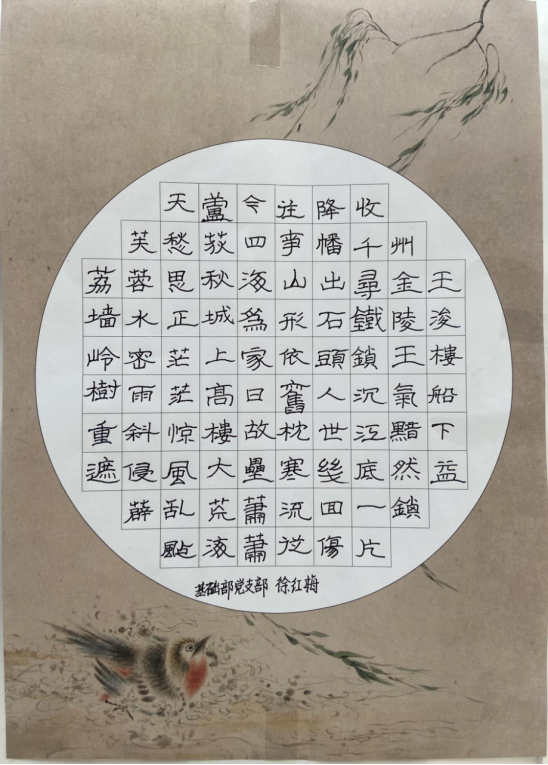 王浚樓船下益
州金陵王氣黯然鎖
收千尋鐵鎖沉江底一片
降幡出石頭人世幾回傷
往事山形依舊枕寒流從
今四海爲家日故壘蕭蕭
蘆荻秋城上高樓大荒海
天愁思正茫茫惊風乱點
芙蓉水密雨斜侵薜
荔墙岭樹重遮
基础部党支部 徐红梅